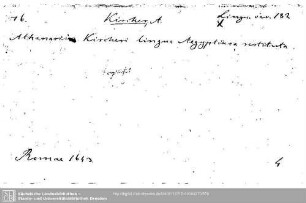 16. Kircher, A. Lingu. inv. 182
Athanasii Kircheri lingua Aegyptiaca restituta
Romae 1643 4
Sächsische Landesbibliothek -
Staats- und Universitätsbibliothek Dresden